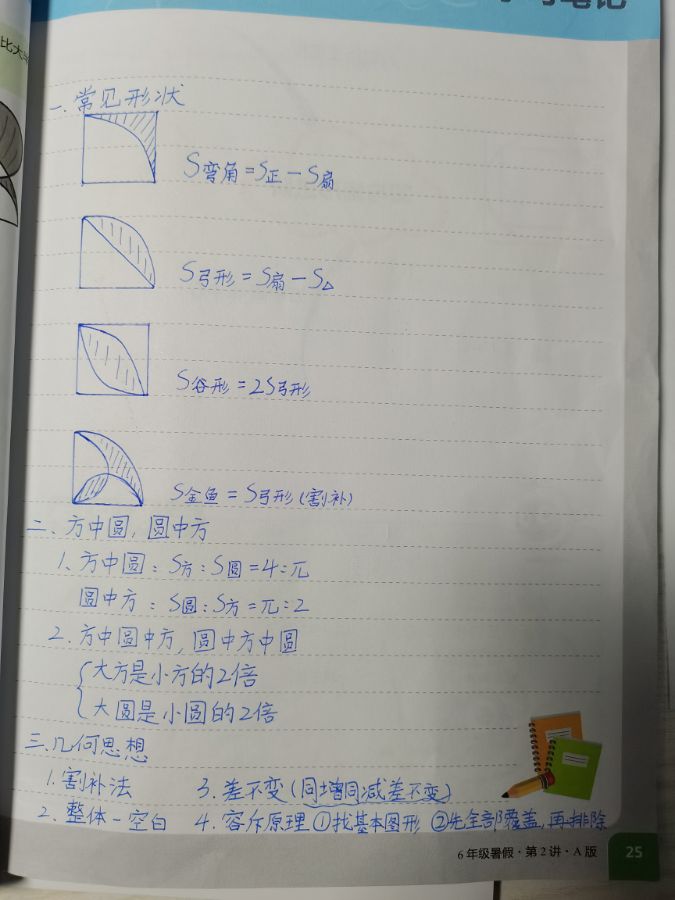 学习笔记
比大
一.常见形状
S弯角=S正-S扇
S弓形=S扇-S△
S谷形=2S弓形
S金鱼=S弓形(割补)
二、方中圆,圆中方
1、方中圆:S方:S圆=4:π
圆中方:S圆:S方=π:2
2.方中圆中方,圆中方中圆
大方是小方的2倍
大圆是小圆的2倍
三.几何思想
1.割补法 3.差不变(同增同减差不变)
2.整体-空白 4.容斥原理①找基本图形 ②先全部覆盖,再排除
6年级暑假·第2讲·A版 25